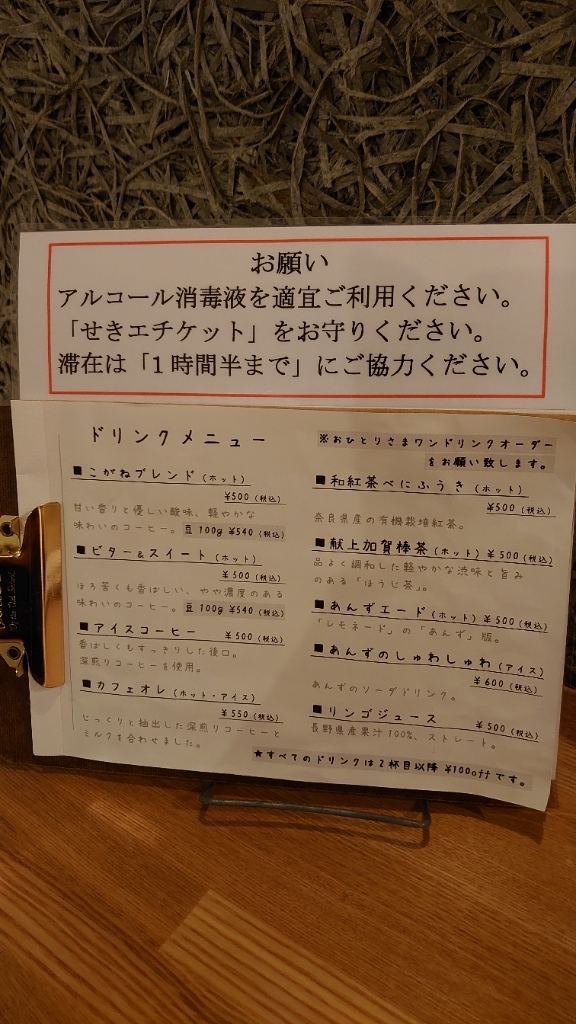 お願い
アルコール消毒液を適宜ご利用ください。
「せきエチケット」をお守りください。
滞在は「1時間半まで」にご協力ください。
ドリンクメニュー
■こがねブレンド（ホット）
¥500（税込）
甘い香りと優しい酸味、軽やかな
味わいのコーヒー。豆100g ¥540（税込）
■ビター&スイート（ホット）
¥500（税込）
ほろ苦くも香ばしい、やや濃度のある
味わいのコーヒー。豆100g ¥540（税込）
■アイスコーヒー ¥500（税込）
香ばしくもすっきりした後口。
深煎りコーヒーを使用。
■カフェオレ（ホット・アイス）
¥550（税込）
じっくりと抽出した深煎りコーヒーと
ミルクを合わせました。
※おひとりさまワンドリンクオーダー
をお願い致します。
■和紅茶べにふうき（ホット）
¥500（税込）
奈良県産の有機栽培紅茶。
■献上加賀棒茶（ホット）¥500（税込）
品よく調和した軽やかな渋味と旨み
のある「ほうじ茶」。
■あんずエード（ホット）¥500（税込）
「レモネード」の「あんず」版。
■あんずのしゅわしゅわ（アイス）
¥600（税込）
あんずのソーダドリンク。
■リンゴジュース ¥500（税込）
長野県産果汁100%、ストレート。
★すべてのドリンクは2杯目以降 ¥100offです。